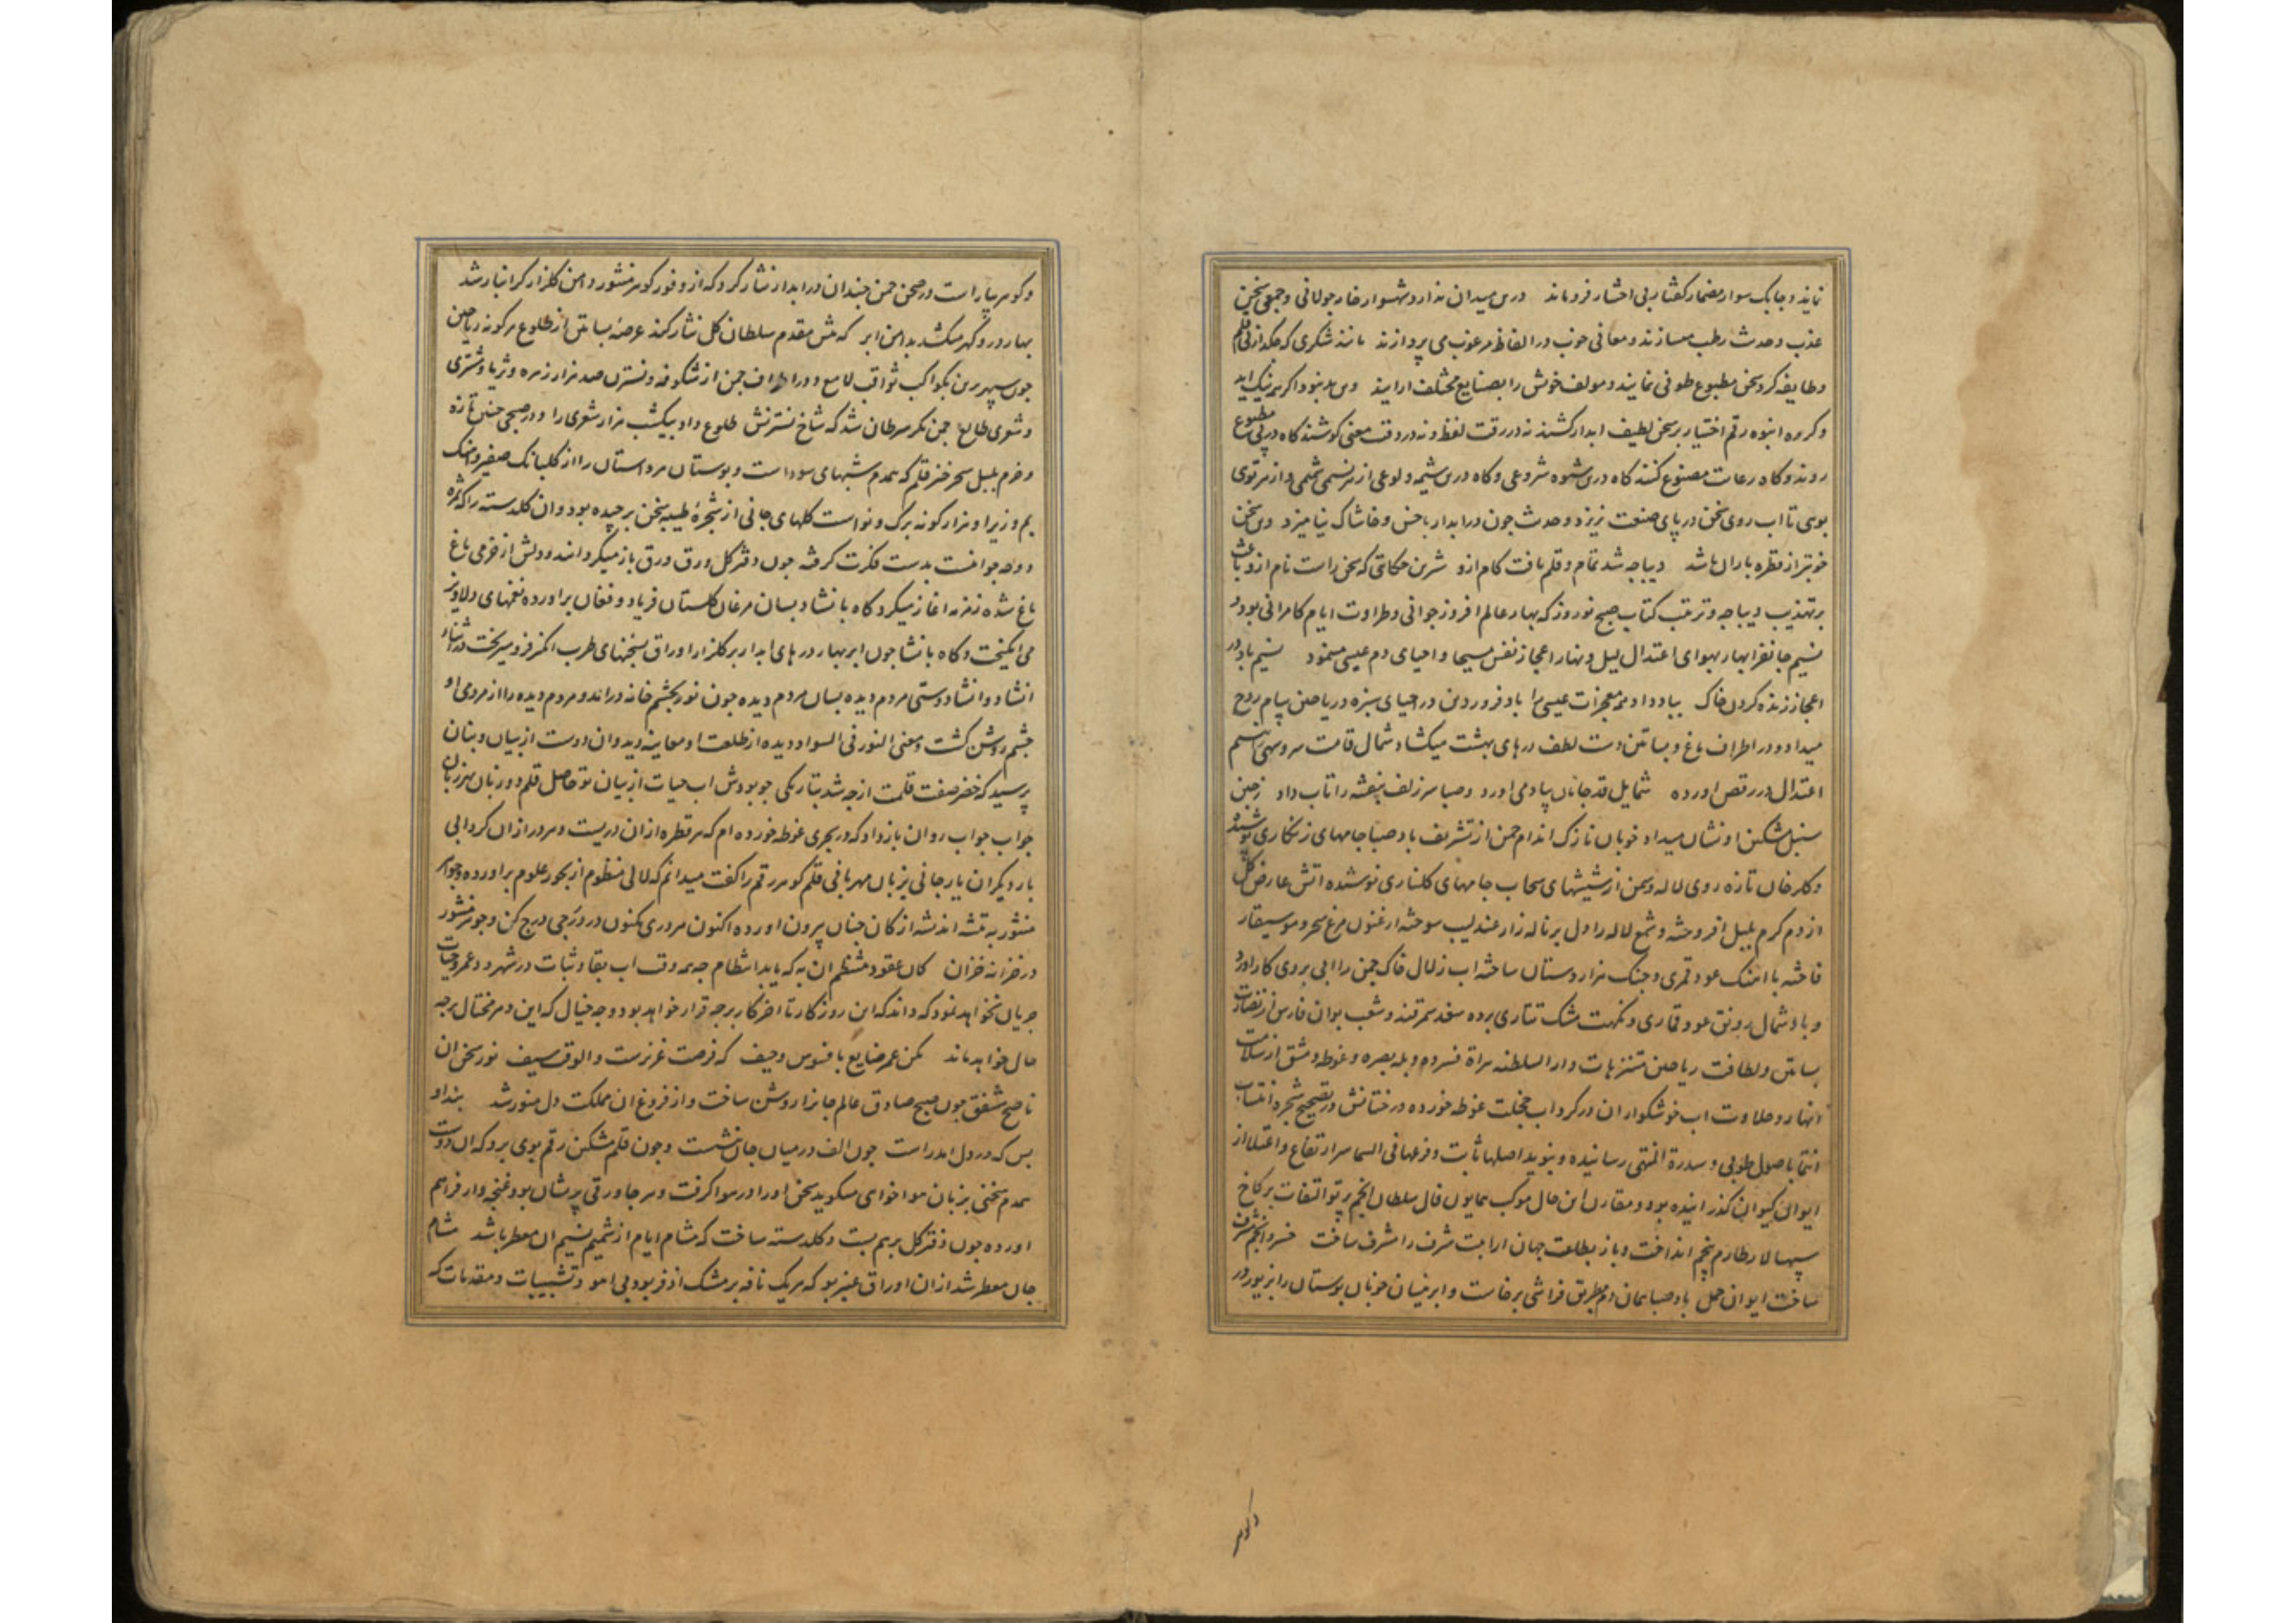 نمایند و چابک سوار مضمار گفتار بی اختیار فرو ماند درین میدان ندارد شهسوار خار جولانی و جمعی سخن
عذب و حدیث رطب میسازند و معانی خوب در الفاظ مرغوب می پردازند مانند شکری که چکد از نی قلم
و طایفه کرد سخن مطبوع طوفی نمایند و مولف خویش را بصنایع مختلف ارایند
و کر ره انبوه رقم اختیار بر سخن لطیف ابدار کشند نه در رقت لفظ و نه در دقت معنی کوشند کاه در پی مطبوع
روند و کاه رعایت مصنوع کنند کاه درین شیوه شروعی و کاه درین شیمه ولوعی از هر نسمی شمی و از هر توی
بویی تا اب روی سخن در پای صنعت نریزد و حدیث چون در ابدار با خس و خاشاک نیامیزد وین سخن
خوبتر از قطره باران باشد دیباجه شد تمام و قلم یافت کام ازو شیرین حکایتی که سخن راست نام ازو باعث
بر تهذیب دیباجه و ترتیب کتاب صبح نوروز که بهار عالم افروز جوانی و طراوت ایام کامرانی بود و
نسیم جانفزا بهار بهوای اعتدال لیل و نهار اعجاز نفس مسیحا و احیای دم عیسی مینمود نسیم باد در
اعجاز زنده کردن خاک بباد داد همه معجزات عیسی را باد فروردین در احیای سبزه و ریاحین پیام روح
میداد و در اطراف باغ و بساتین دست لطف درهای بهشت میکشاد شمال قامت سرو سهی را نسیم
اعتدال در رقص اورده شمایل قد جانان بیاد می اورد و صبا سر زلف بنفشه را تاب داد زچین
سنبل مشکین او نشان میداد خوبان نازک اندام چمن از تشریف باد صبا جامهای زنکاری پوشیده
و کلرخان تازه روی لاله و سمن از شیشهای سحاب جامهای کلناری نوشیده اتش عارض کل
از دم کرم بلبل افروخته و شمع لاله را دل بر ناله زار عندلیب سوخته ارغنون مرغ سحر و موسیقار
فاخته با اهنک عود قمری و چنک هزار دستان ساخته اب زلال خاک چمن را ابی بر روی کار اورد
و باد شمال رونق عود قماری و نکهت مشک تتاری برده سغد سمرقند و شعب بوان فارس از نضارت
بساتین و لطافت ریاحین متنزهات دار السلطنه هراة فسرده و بله بصره و غوطه دمشق از سلاست
انهار و حلاوت اب خوشکوار ان در کرداب خجلت غوطه خورده درختانش در تصحیح شجره انتساب
انتما باصول طوبی و سدرة المنتهی رسانیده و بنوید اصلها ثابت و فرعها فی السما سر ارتفاع و اعتلا از
ایوان کیوان کذرانیده بود و مقارن این حال موکب همایون فال سلطان انجم پرتو التفات بر کاخ
سپهسالار طارم پنجم انداخت و باز بطلعت جهان ارا بیت شرف را مشرف ساخت خسرو انجم شرف
ساخت ایوان حمل باد صبا همان دم بطریق فراشی برخاست و ابر نیسان خوبان بوستان را بزیور در
وکوهر
و کوهر بیاراست و در صحن چمن چندان در ابدار نثار کرد که از وفور کوهر منثور دامن کلزار کرانبار شد
بهار در و کهر میکشد بدامن ابر که پیش مقدم سلطان کل نثار کند عرصه بساتین از طلوع هر کونه ریاحین
چون سپهر برین بکواکب ثواقب لامع و در اطراف چمن از شکوفه و نسترن صد هزار زهره و ثریا و مشتری
و شعری طالع چمن مکر سرطان شد که شاخ نسترنش طلوع داد بیکشب هزار شعری را و در صبحی چنین تازه
و خرم بلبل سحر خیز قلم که همدم شبهای سوداست و بوستان هر داستان را از کلبانک صفیر و اهنک
بم و زیر او هزار کونه برک و نواست کلهای جانی از شجره طیبه سخن برچیده بود و ان کلدسته را که ثمره
دوحه جوانیست بدست فکرت کرفته چون دفتر کل ورق ورق باز میکردانند و دلش از خرمی باغ
باغ شده زمزمه اغاز میکرد کاه بانشاد بسان مرغان کلستان فریاد و فغان براورده نغمهای دلاویز
می انکیخت و کاه بانشا چون ابر بهار درهای ابدار بر کلزار اوراق سخنهای طرب انکیز فرو میریخت در اثنا
انشاد و انشا دوستی مردم دیده بسان مردم دیده چون نور بچشم خانه دراند و مردم دیده را از مردمی او
چشم روشن کشت و معنی النور فی السواد دیده از طلعت او معاینه دید و ان دوست از بیان و بنان
پرسید که خضر صفت قلمت از چه شد بتاریکی چو بودش اب حیات از بیان تو حاصل قلم دو زبان بهر زبان
جواب جواب روان باز داد که در بحری غوطه خورده ام که هر قطره از ان دریست و هر در از ان کردابی
بار دیکر ان یار جانی بزبان مهربانی قلم کوهر رقم را کفت میدانم که لالی منظوم از بحور علوم براورده و جواهر
منثور به تیشه اندیشه از کان جنان بیرون اورده اکنون هر دری مکنون در درجی درج کن و جوهر منثور
در خزانه خزان کان عقود منتظم ان به که یابد انتظام چه همه وقت اب بقا و ثبات در شهر رود عمر و حیات
جریان نخواهد نمود که داند که این روز کار تا اخر کار بر چه قرار خواهد بود و چه خیال که این دهر مختال بر چه
حال خواهد ماند مکن عمر ضایع بافسوس و حیف که فرصت عزیزست و الوقت سیف نور سخن ان
ناصح مشفق چون صبح صادق عالم جانرا روشن ساخت و از فروغ ان مملکت دل منور شد
بس که در دل امد راست چون الف در میان جان نشست و چون قلم مشکین رقم بوی برد که ان دوست
همدم سخنی بزبان هوا خواهی میکوید سخن او را در هوا کرفت و هر جا ورقی پریشان بود غنچه وار فراهم
اورده چون دفتر کل بر هم بست و کلدسته ساخت که مشام ایام از شمیم نسیم ان معطر باشد مشام
جان معطر شد از ان اوراق عنبر بو که هر یک نافه بر مشک اذفر بود بی اهو و تشبیبات و مقدمات که